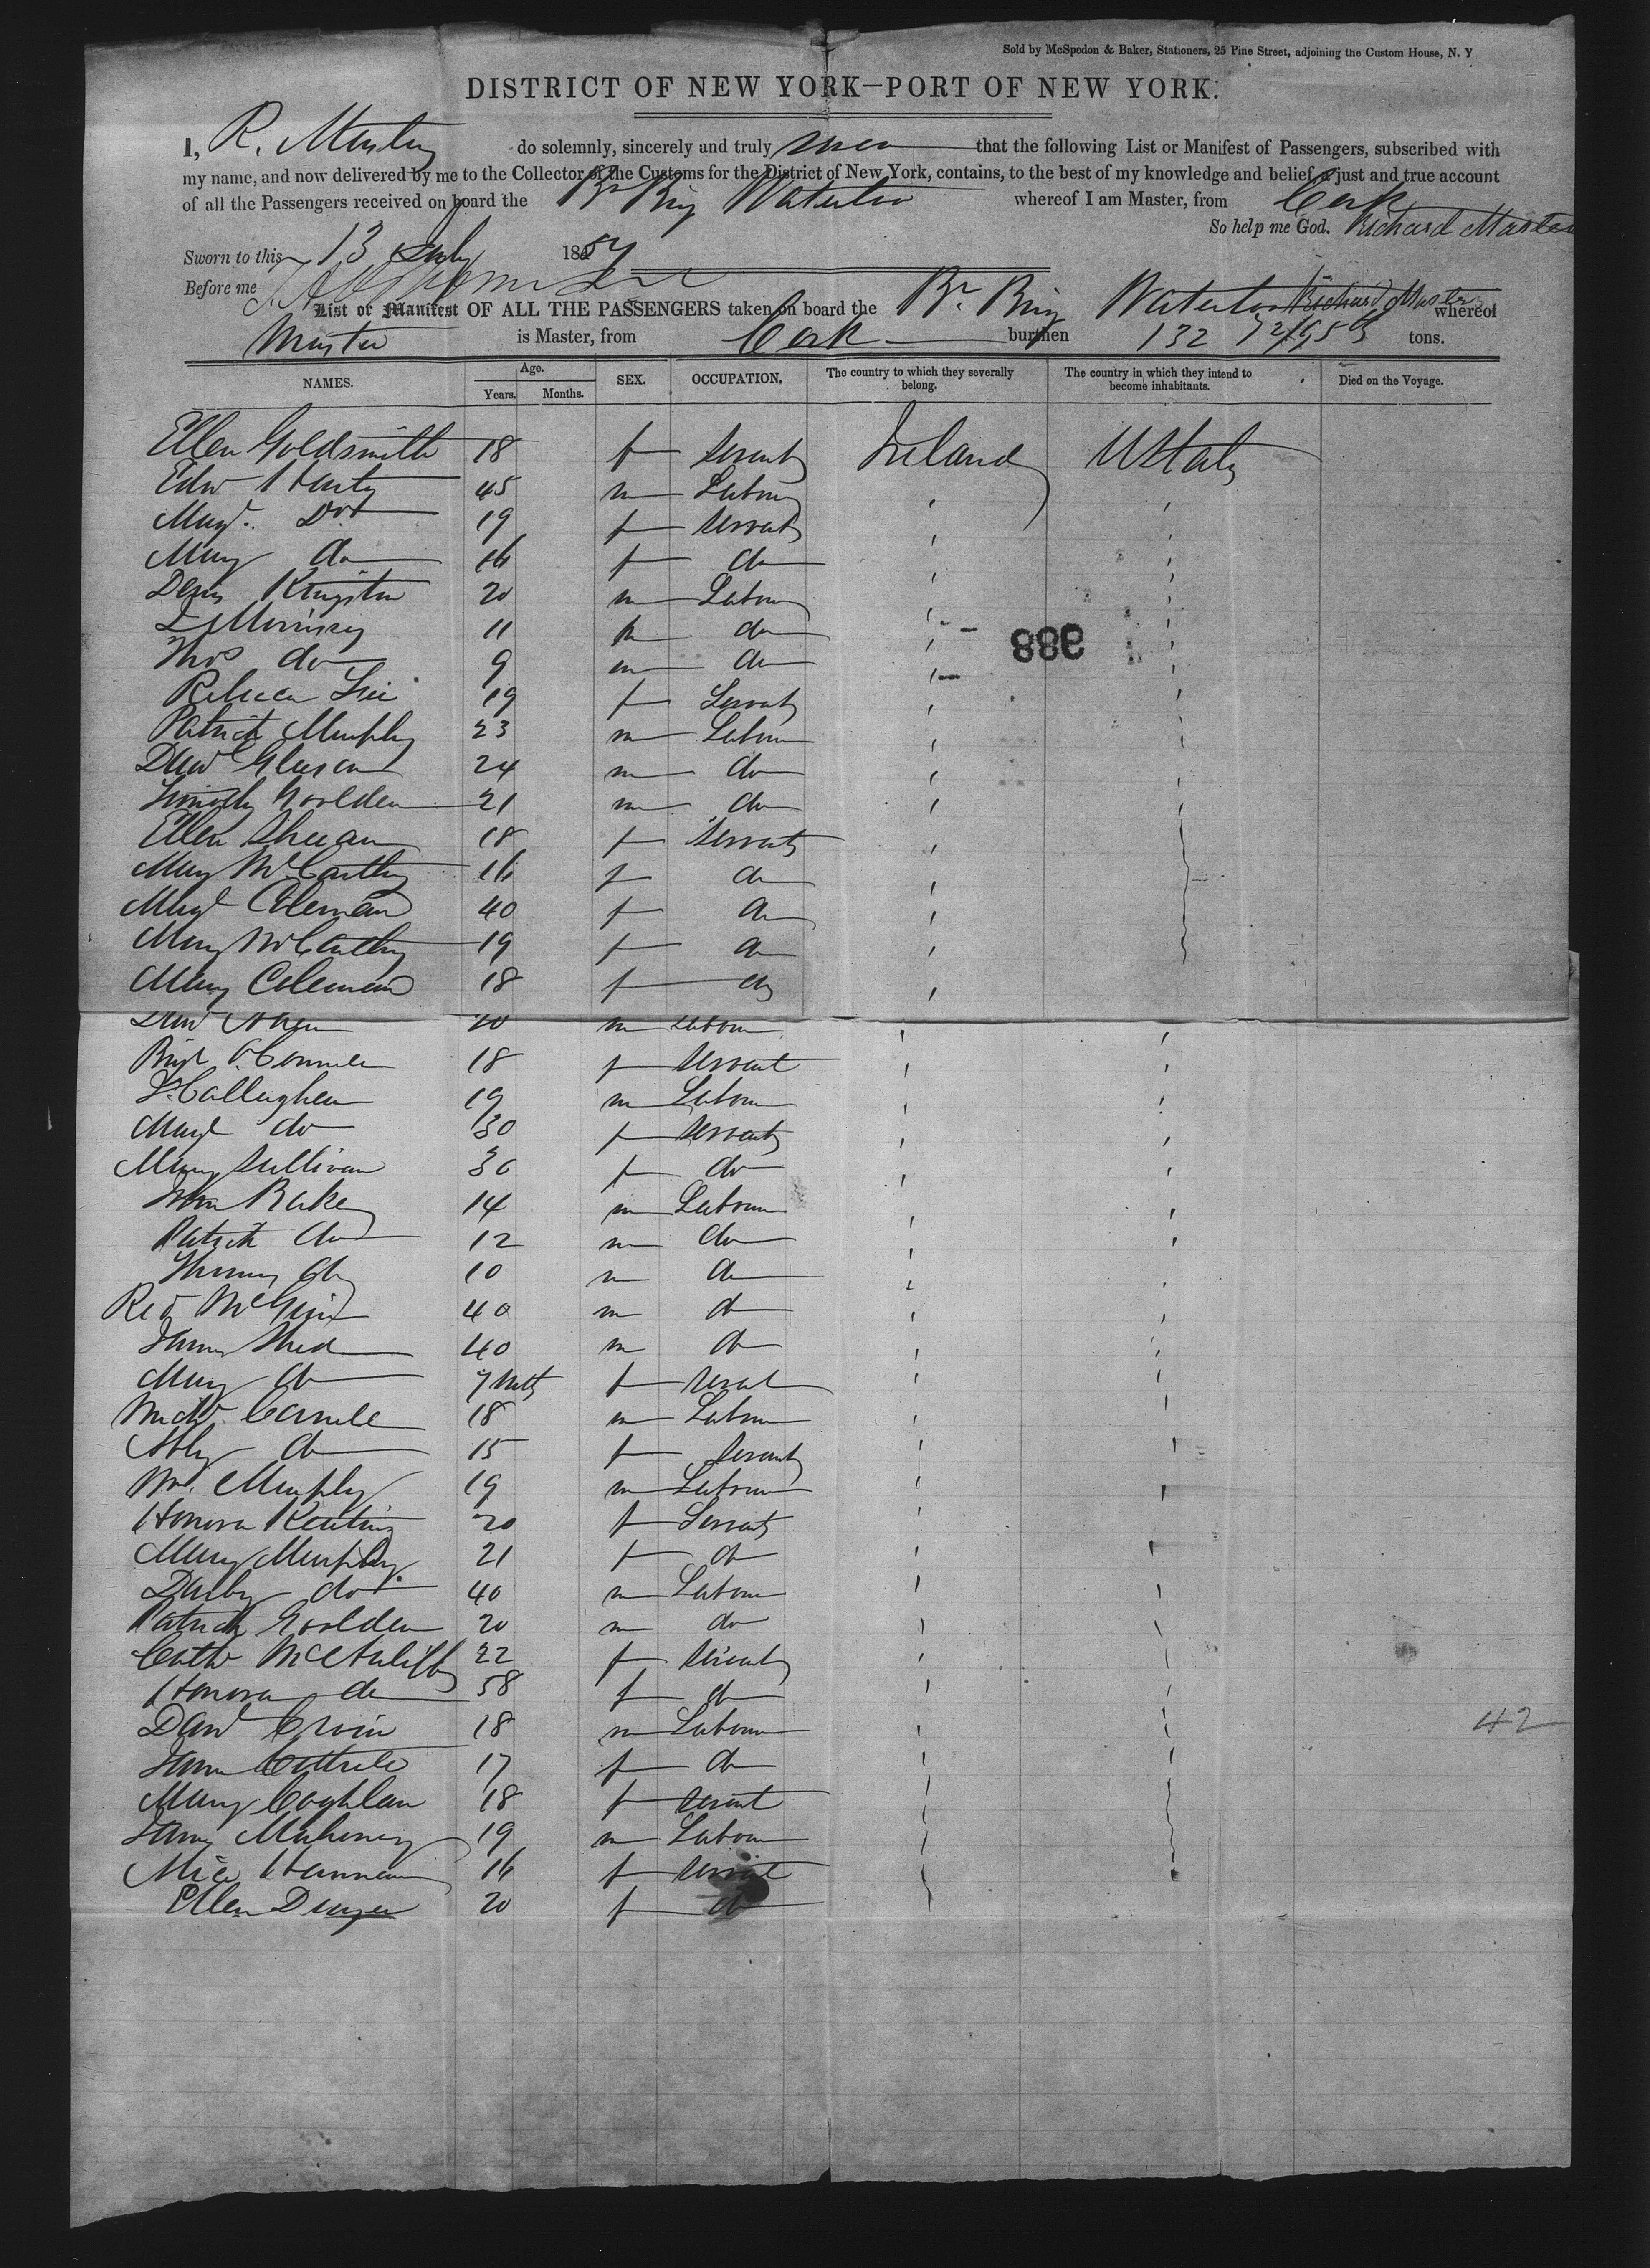 Sold by McSpedon & Baker, Stationers, 25 Pine Street, adjoining the Custom House, N. Y
DISTRICT OF NEW YORK—PORT OF NEW YORK.
I, R. do solemnly, sincerely and truly swear that the following List or Manifest of Passengers, subscribed with
my name, and now delivered by me to the Collector of the Customs for the District of New York, contains, to the best of my knowledge and belief a just and true account
of all the Passengers received on board the Br Brig Waterloo whereof I am Master, from Cork
So help me God. Richard
Sworn to this 13 July 18
Before me
List or Manifest OF ALL THE PASSENGERS taken on board the Br. Brig Waterloo Richard whereof
is Master, from Cork burthen 132 72/95ths tons.
NAMES. Age. Years. Months. SEX. OCCUPATION. The country to which they severally belong. The country in which they intend to become inhabitants. Died on the Voyage.
Ellen Goldsmith 18 f Servant Ireland UStates
Edw 45 m Labour
Margt. Do 19 f Servant
Mary do 16 f do
Denis Kingston 20 m Labour
Morrisey 11 m do
988
Thos do 9 m do
Rebecca 19 f Servant
Patrick Murphy 23 m Labour
Davd Gleeson 24 m do
Timothy Goolden 21 m do
Ellen Sheean 18 f Servant
Mary McCarthy 16 f do
Margt Coleman 40 f do
Mary McCarthy 19 f do
Mary Coleman 18 f do
Davd Ahern 20 m Labour
Bridt OConnell 18 f Servant
Callaghan 19 m Labour
Margt do 30 f Servant
Mary Sullivan 30 f do
Bake 14 m Labour
Patrick do 12 m do
Thomas do 10 m do
40 m do
James 40 m do
Mary do 7 Mths f Servt
Michl. Connell 18 m Labour
Abby do 15 f Servant
Wm. Murphy 19 m Labour
Honora Keating 20 f Servant
Mary Murphy 21 f do
Darby do 40 m Labour
Patrick Goolden 20 m do
Cathr McAuliffe 22 f Servant
Honora do 58 f do
Davd 18 m Labour
42
17 f do
Mary Coghlan 18 f Servant
James Mahoney 19 m Labour
16 f Servant
Ellen Dwyer 20 f do